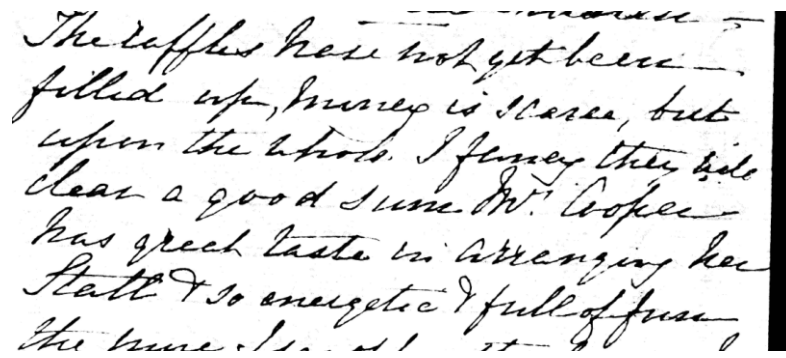 The raffles have not yet been —
filled up, money is scarce, but
upon the whole I fancy they will
clear a good sum Mrs. Cooper
has great taste in arranging her
Stall & so energetic & full of fun
the more I